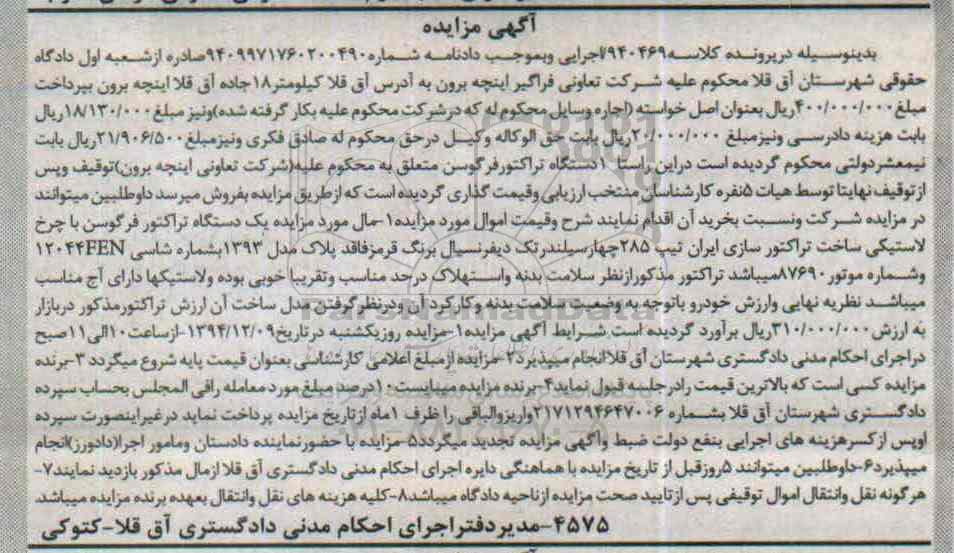 آگهی مزایده
بدینوسیله درپرونده کلاسه ۹۴۰۴۶۹/اجرایی وبموجب دادنامه شماره ۹۴۰۹۹۷۱۷۶۰۲۰۰۴۹۰صادره ازشعبه اول دادگاه
حقوقی شهرستان آق قلا محکوم علیه شرکت تعاونی فراگیر اینچه برون به آدرس آق قلا کیلومتر۱۸جاده آق قلا اینچه برون بپرداخت
مبلغ ۴۰۰/۰۰۰/۰۰۰ریال بعنوان اصل خواسته (اجاره وسایل محکوم له که درشرکت محکوم علیه بکار گرفته شده)ونیز مبلغ ۱۸/۱۳۰/۰۰۰ریال
بابت هزینه دادرسی ونیزمبلغ ۲۰/۰۰۰/۰۰۰ریال بابت حق الوکاله وکیل درحق محکوم له صادق فکری ونیزمبلغ۲۱/۹۰۶/۵۰۰ریال بابت
نیمعشردولتی محکوم گردیده است دراین راستا ۱دستگاه تراکتورفرگوسن متعلق به محکوم علیه(شرکت تعاونی اینچه برون)توقیف وپس
ازتوقیف نهایتا توسط هیات ۵نفره کارشناسان منتخب ارزیابی وقیمت گذاری گردیده است که ازطریق مزایده بفروش میرسد داوطلبین میتوانند
در مزایده شرکت ونسبت بخرید آن اقدام نمایند شرح وقیمت اموال مورد مزایده۱-مال مورد مزایده یک دستگاه تراکتور فرگوسن با چرخ
لاستیکی ساخت تراکتور سازی ایران تیپ ۲۸۵چهارسیلندرتک دیفرنسیال برنگ قرمزفاقد پلاک مدل ۱۳۹۳بشماره شاسی ۱۲۰۴۴FEN
وشماره موتور ۸۷۶۹۰میباشد تراکتور مذکورازنظر سلامت بدنه واستهلاک درحد مناسب وتقریبا خوبی بوده ولاستیکها دارای آج مناسب
میباشد نظریه نهایی وارزش خودرو باتوجه به وضعیت سلامت بدنه وکارکرد آن ودرنظرگرفتن مدل ساخت آن ارزش تراکتورمذکور دربازار
به ارزش ۳۱۰/۰۰۰/۰۰۰ریال برآورد گردیده است.شرایط آگهی مزایده۱-مزایده روزیکشنبه درتاریخ۱۳۹۴/۱۲/۰۹-ازساعت ۱۰الی۱۱صبح
دراجرای احکام مدنی دادگستری شهرستان آق قلاانجام میپذیرد۲-مزایده ازمبلغ اعلامی کارشناسی بعنوان قیمت پایه شروع میگردد ۳-برنده
مزایده کسی است که بالاترین قیمت رادرجلسه قبول نماید۴-برنده مزایده میبایست ۱۰درصد مبلغ مورد معامله رافی المجلس بحساب سپرده
دادگستری شهرستان آق قلا بشماره ۲۱۷۱۲۹۴۶۴۷۰۰۶واریزوالباقی را ظرف ۱ماه ازتاریخ مزایده پرداخت نماید درغیراینصورت سپرده
اوپس ازکسرهزینه های اجرایی بنفع دولت ضبط وآگهی مزایده تجدید میگردد۵-مزایده با حضورنماینده دادستان ومامور اجرا(دادورز)انجام
میپذیرد۶-داوطلبین میتوانند ۵روزقبل از تاریخ مزایده با هماهنگی دایره اجرای احکام مدنی دادگستری آق قلا ازمال مذکور بازدید نمایند۷-
هرگونه نقل وانتقال اموال توقیفی پس ازتایید صحت مزایده ازناحیه دادگاه میباشد۸-کلیه هزینه های نقل وانتقال بعهده برنده مزایده میباشد.
۴۵۷۵-مدیردفتراجرای احکام مدنی دادگستری آق قلا-کتوکی